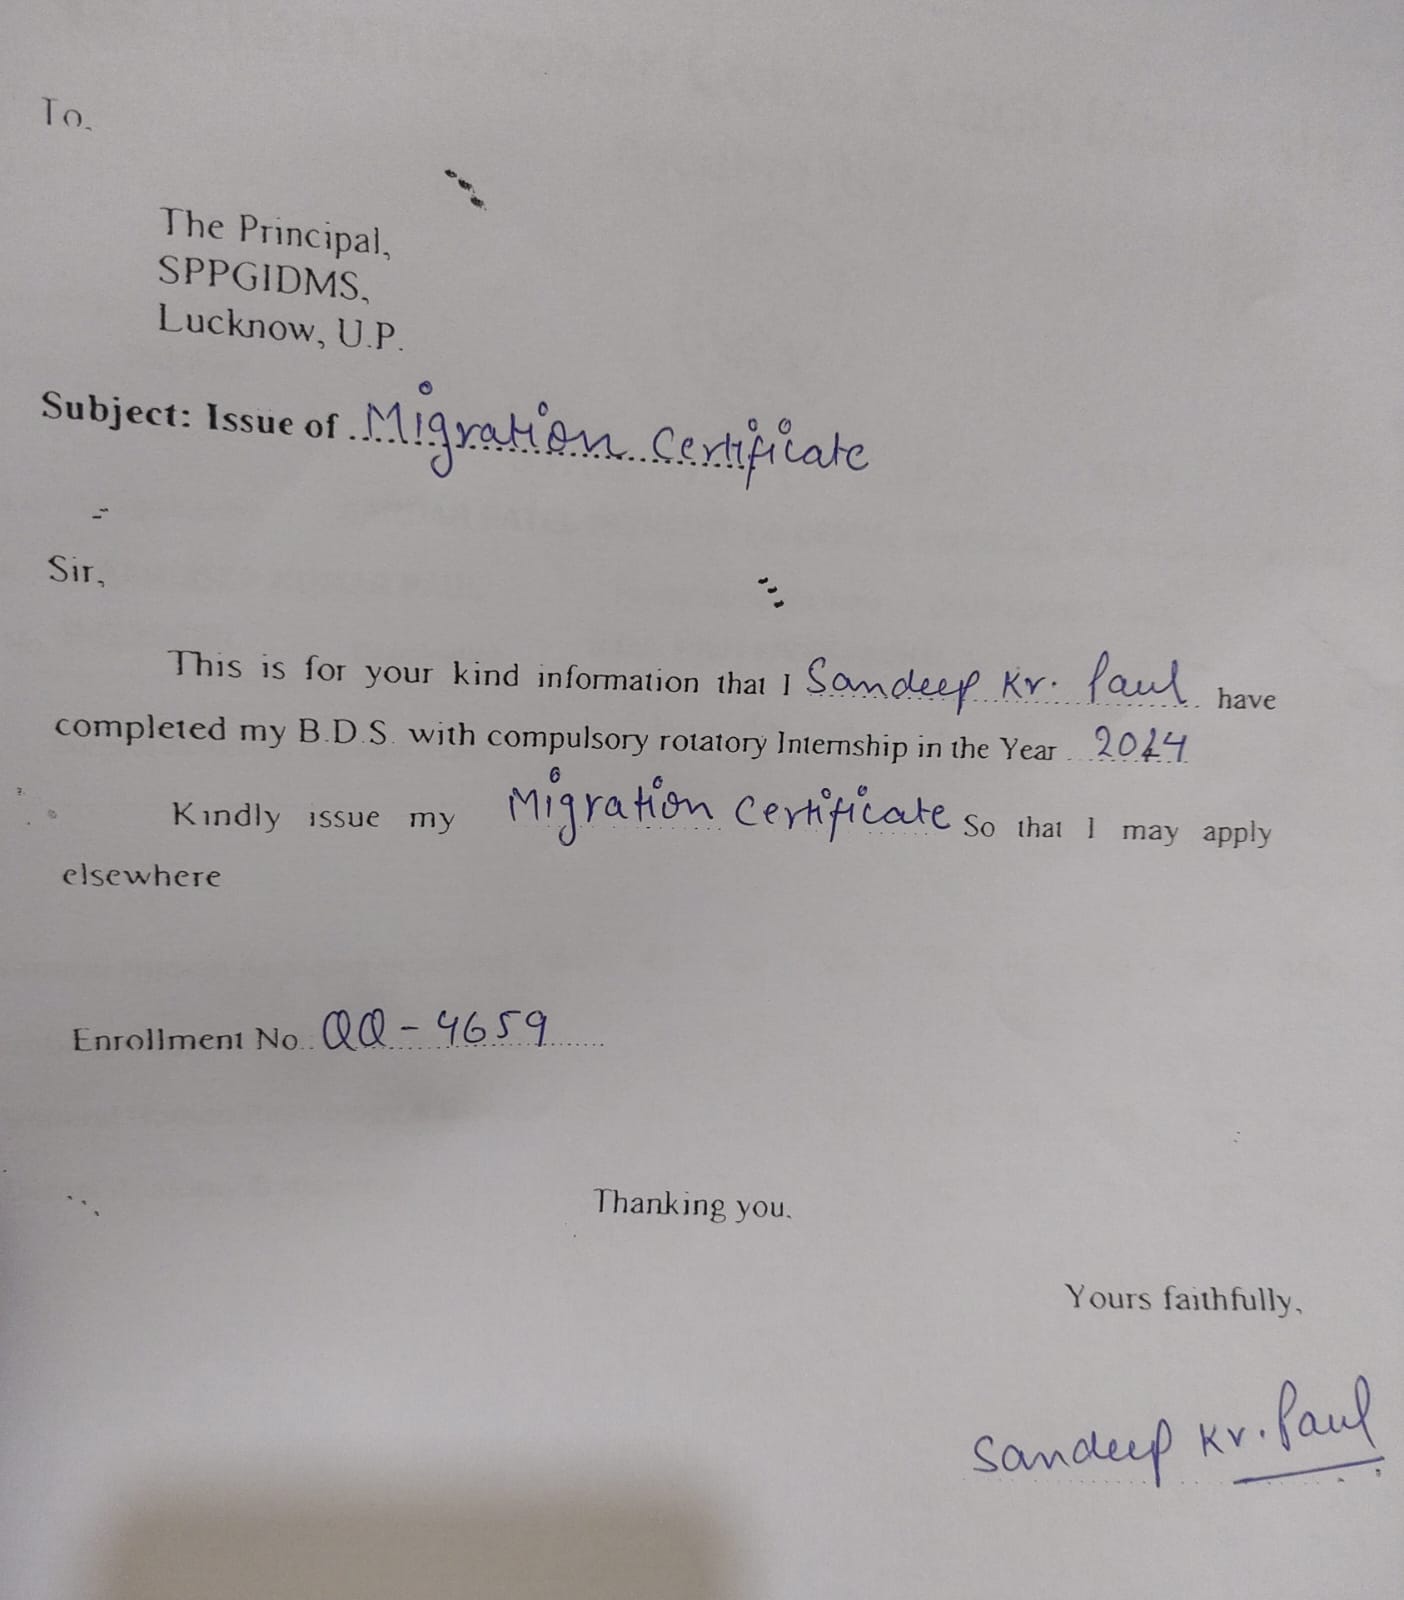 To,
The Principal,
SPPGIDMS,
Lucknow, U.P.
Subject: Issue of Migration Certificate
Sir,
This is for your kind information that I Sandeep Kr. Paul have
completed my B.D.S. with compulsory rotatory Internship in the Year
Kindly issue my Migration Certificate So that I may apply
elsewhere
Enrollment No. QQ - 4659
Thanking you.
Yours faithfully,
Sandeep Kr. Paul